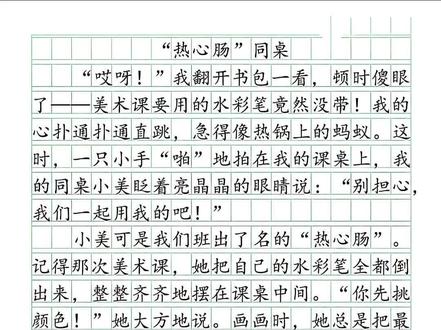 “热心肠”同桌
“哎呀！”我翻开书包一看，顿时傻眼
了——美术课要用的水彩笔竟然没带！我的
心扑通扑通直跳，急得像热锅上的蚂蚁。这
时，一只小手“啪”地拍在我的课桌上，我
的同桌小美眨着亮晶晶的眼睛说：“别担心，
我们一起用我的吧！”
小美可是我们班出了名的“热心肠”。
记得那次美术课，她把自己的水彩笔全都倒
出来，整整齐齐地摆在课桌中间。“你先挑
颜色！”她大方地说。画画时，她总是把最